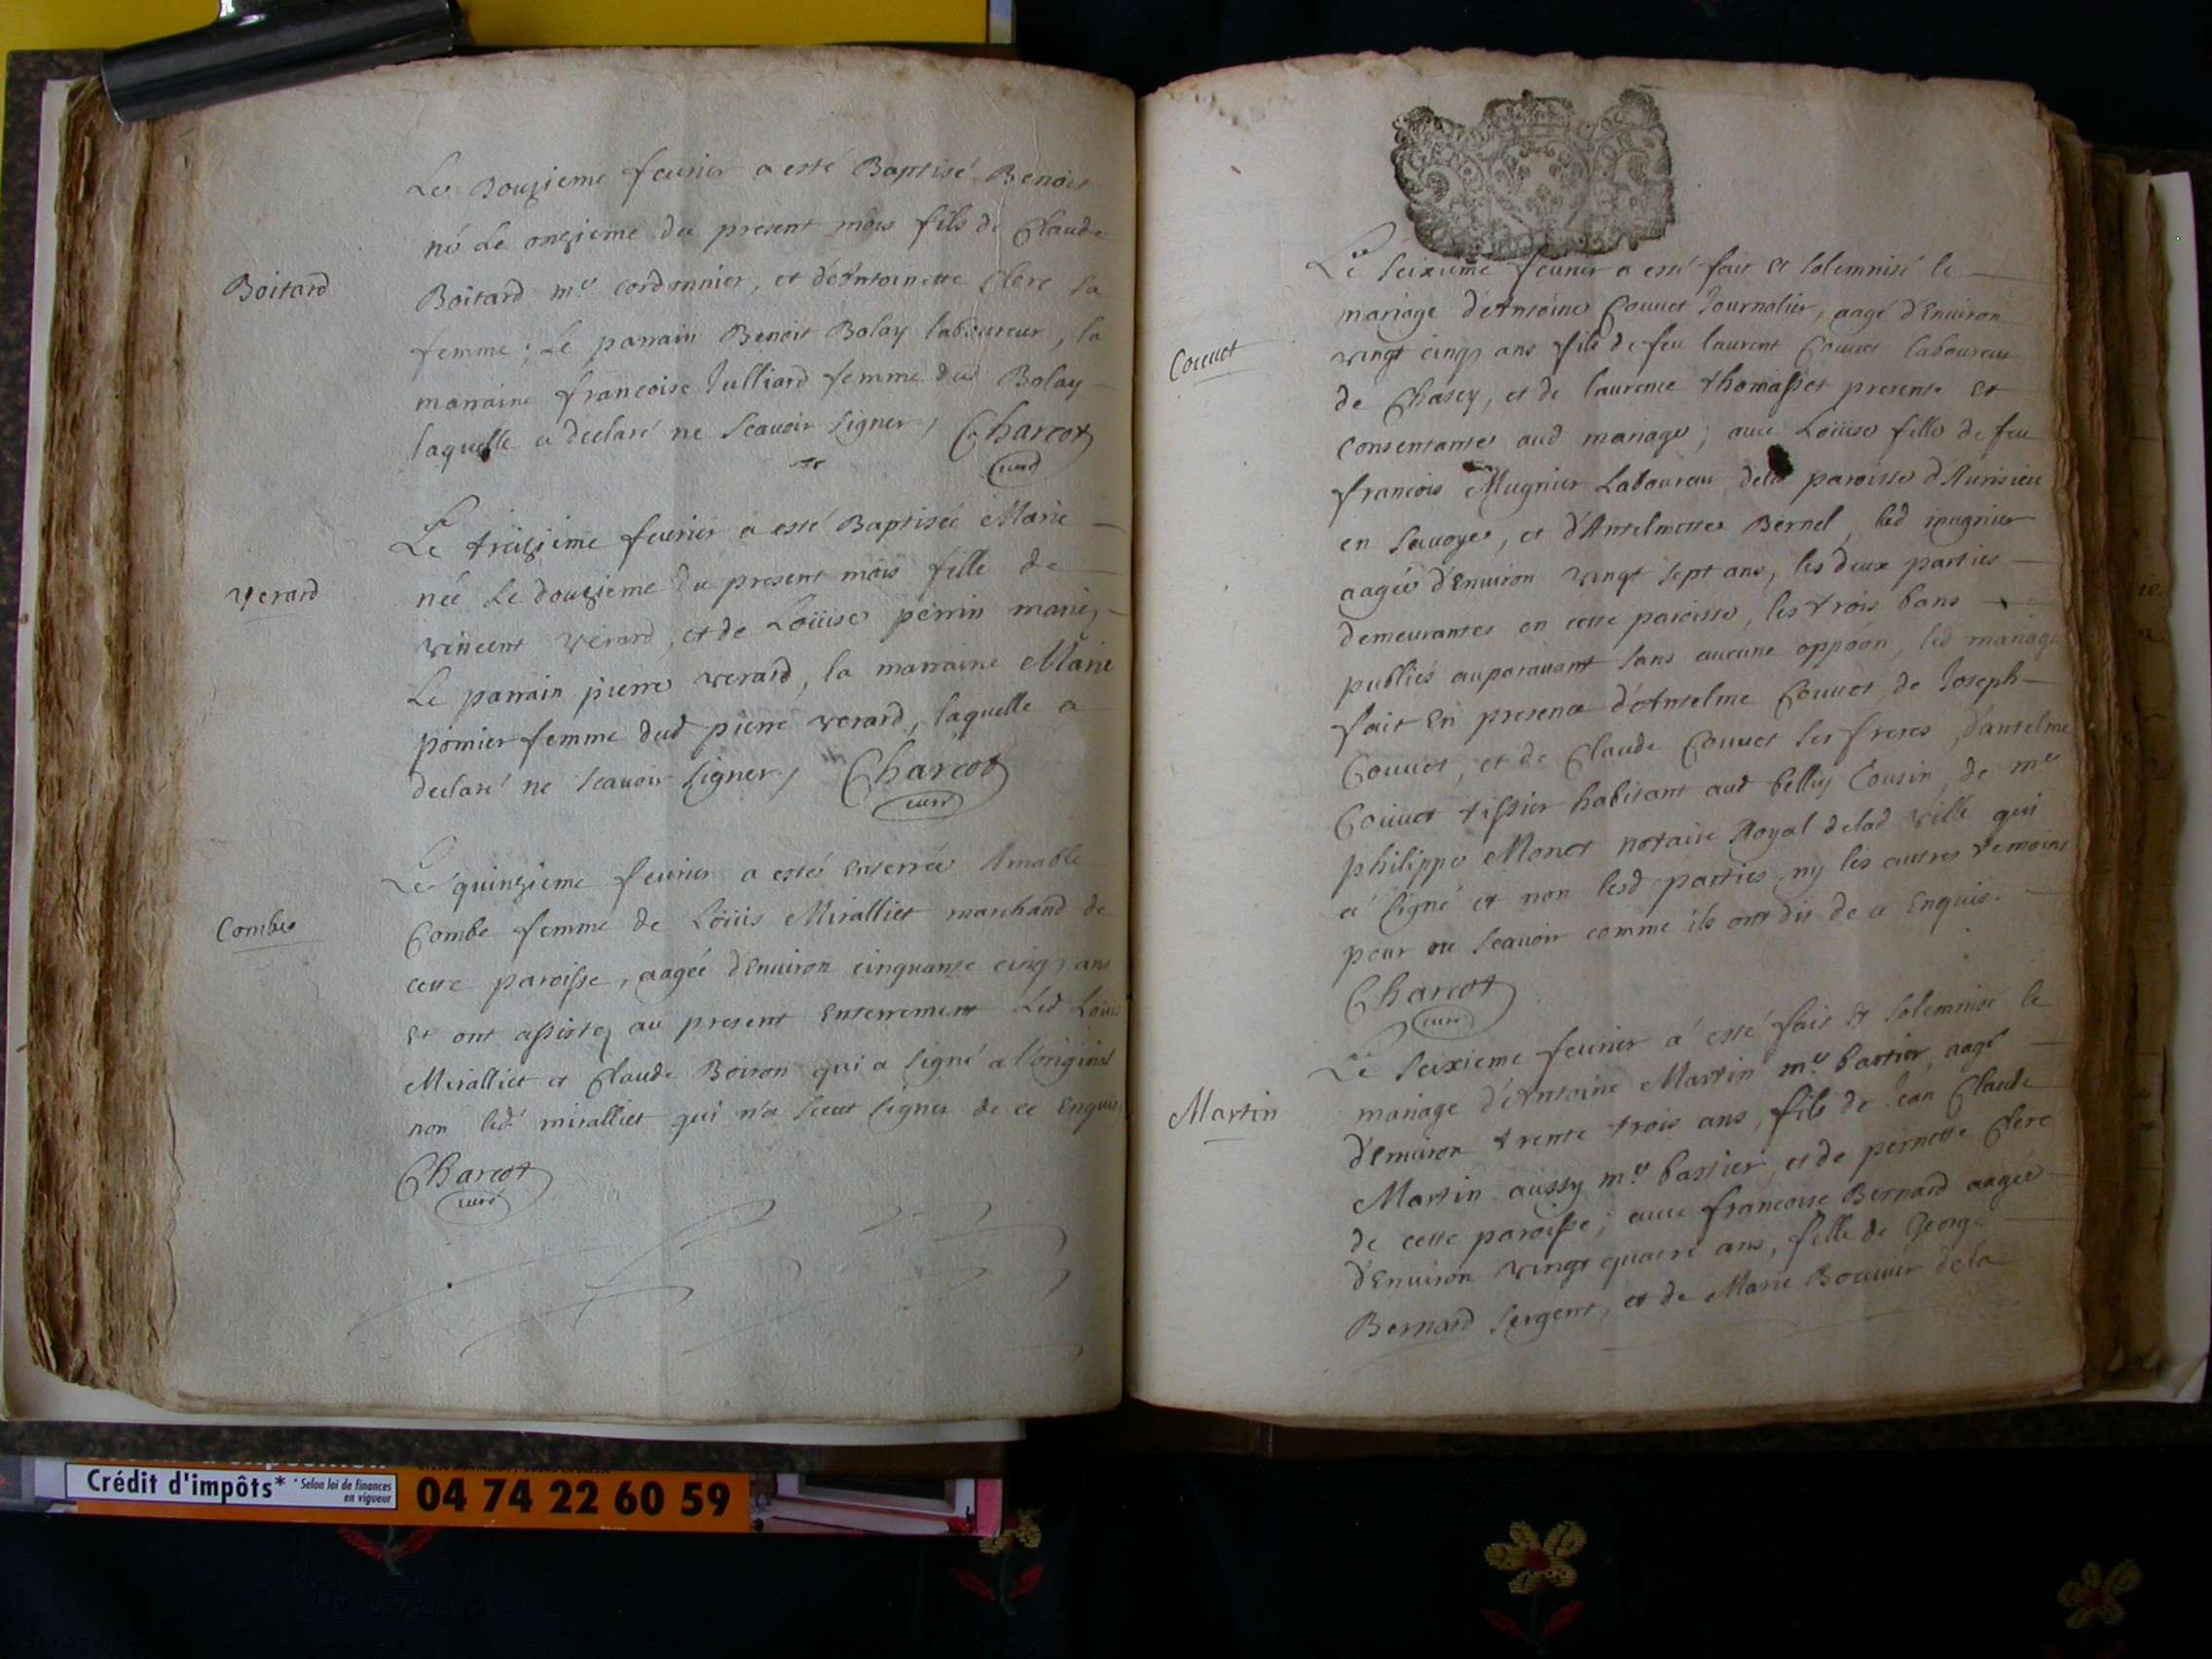 Le Douzieme feurier a esté Baptisé Benoit
né Le onzieme du present mois fils de Claude
Boitard
Boitard me cordonnier, et d'Antoinette Clerc sa
femme; Le parrain Benoit Bolay laboureur, la
marraine francoise Julliard femme dud Bolay
laquelle a declaré ne scauoir signer, Charcot
curé
Le treizieme feurier a esté Baptisée Marie
née Le douzieme du present mois fille de
Verard
vincent verard, et de Loüise perrin mariez
Le parrain pierre verard, la marraine Marie
pomier femme dud pierre verard, laquelle a
declaré ne scauoir signer, Charcot
curé
Le quinzieme feurier a esté enterrée Amable
Combe
Combe femme de Loüis Miralliet marchand de
cette paroisse, aagée d'Enuiron cinquante cinq ans
et ont assistez au present enterrement Led Louis
Miralliet et Claude Boiron qui a signé a l'original
non led. miralliet qui n'a sceut signer de ce enquis
Charcot
curé
Le seixieme feurier a esté fait et solemnisé le
mariage d'Antoine Couuet Journalier, aagé d'Enuiron
Couuet
vingt cinq ans fils de feu laurent Couuet laboureur
de Chasey, et de laurence thomasset presente et
consentante aud mariage; auec Loüise fille de feu
francois Mugnier Laboureur dela paroisse d'
en sauoye, et d'Antelmette Bernel, lad mugnier
aagée d'Enuiron vingt sept ans, les deux parties
demeurantes en cette paroisse, les trois bans
publiés auparauant sans aucune oppoon, led mariage
fait en presence d'Antelme Couuet, de Joseph
Couuet, et de Claude Couuet ses freres, d'antelme
Couuet tissier habitant aud belley Cousin, de me
philippe Monet notaire Royal delad ville qui
a signé et non lesd parties, ny les autres temoins
pour ne scauoir comme ils ont dit de ce enquis.
Charcot
curé
Le seixieme feurier a esté fait et solemnisé le
mariage d'Antoine Martin me bastier, aagé
Martin
d'enuiron trente trois ans, fils de Jean Claude
Martin aussy me bastier, et de pernette Clerc
de cette paroisse; auec francoise Bernard aagée
d'Enuiron vingt quatre ans, fille de George
Bernard sergent, et de Marie Bouuier dela
Crédit d'impôts* *Selon loi de finances
en vigueur
04 74 22 60 59